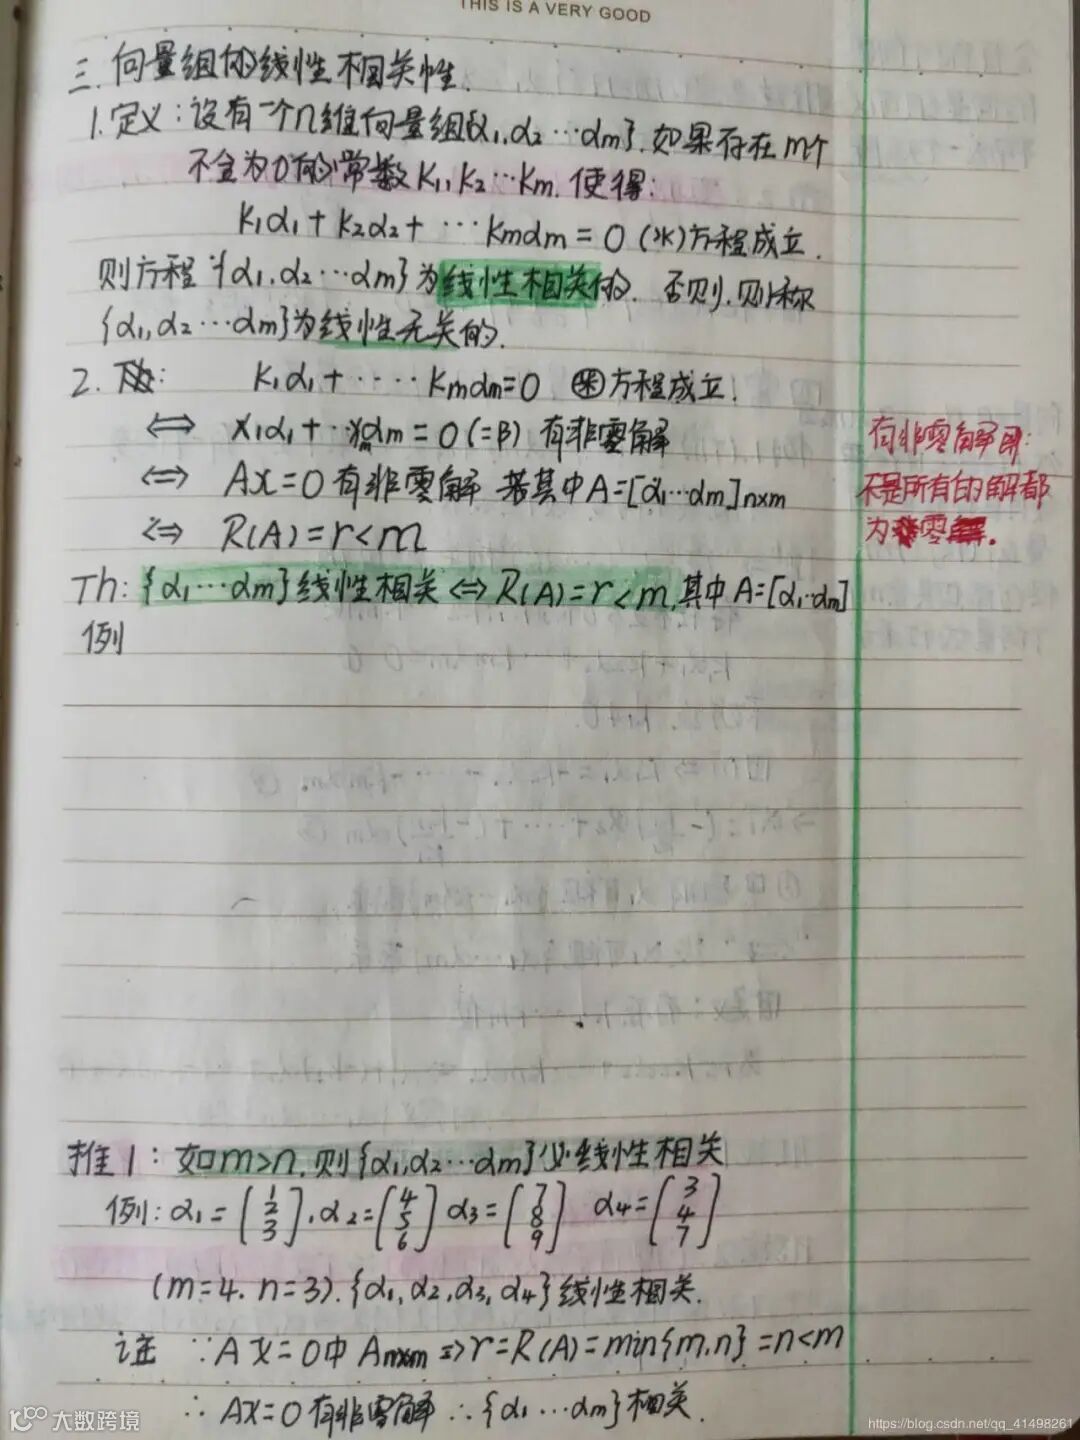 THIS IS A VERY GOOD
三.向量组的线性相关性.
1.定义:设有一个n维向量组{α₁,α₂⋯αm}.如果存在m个
不全为0的常数K₁,K₂⋯Km.使得:
K₁α₁+K₂α₂+⋯Kmαm=0(*)方程成立.
则方程{α₁,α₂⋯αm}为线性相关的.否则,则称
{α₁,α₂⋯αm}为线性无关的.
2. Th: K₁α₁+⋯⋯Kmαm=0 ⊛方程成立.
⇔ X₁α₁+⋯Xmαm=0(=β)有非零解
⇔ AX=0有非零解 若其中A=[α₁⋯αm]n×m
⇔ R(A)=r<m
有非零解即:
不是所有的解都
为零解.
Th:{α₁⋯αm}线性相关⇔R(A)=r<m,其中A=[α₁⋯αm]
例
推1:如m>n,则{α₁,α₂⋯αm}必线性相关
例:α₁=[1 2 3],α₂=[4 5 6] α₃=[7 8 9] α₄=[3 4 7]
(m=4.n=3).{α₁,α₂,α₃,α₄}线性相关.
证 ∵AX=0中An×m⇒r=R(A)=min{m,n}=n<m
∴AX=0有非零解∴{α₁⋯αm}相关.
大数跨境
https://blog.csdn.net/qq_41498261